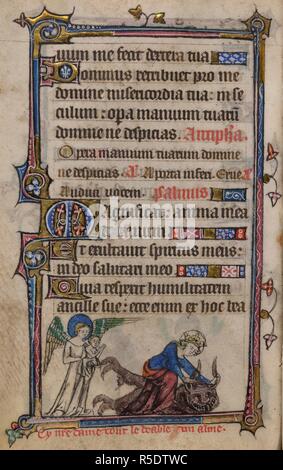 uum me fecit dextera tua
Dominus retribuet pro me
domine misericordia tua: in se
culum: opera manuum tuarum
domine ne despicias. Antipha.
Opera manuum tuarum domine
ne despicias. A porta inferi. Erue
Audiui vocem. Psalmus
Magnificat: anima mea
dominum
Et exultauit spiritus meus:
in deo salutari meo
Quia respexit humilitatem
ancille sue: ecce enim ex hoc bea
Cy n're dame tout le deable d'un alme.
alamy